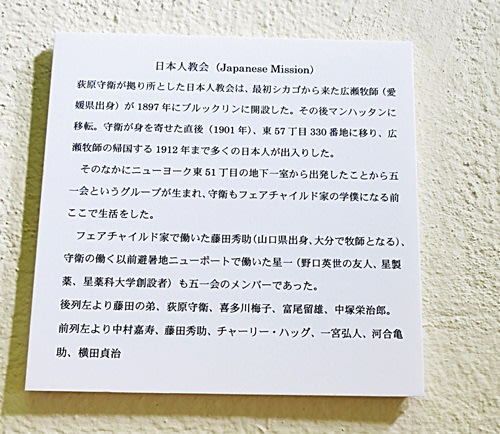 日本人教会（Japanese Mission）
荻原守衛が拠り所とした日本人教会は、最初シカゴから来た広瀬牧師（愛
媛県出身）が 1897 年にブルックリンに開設した。その後マンハッタンに
移転。守衛が身を寄せた直後（1901 年）、東 57 丁目 330 番地に移り、広
瀬牧師の帰国する 1912 年まで多くの日本人が出入りした。
そのなかにニューヨーク東 51 丁目の地下一室から出発したことから五
一会というグループが生まれ、守衛もフェアチャイルド家の学僕になる前
ここで生活をした。
フェアチャイルド家で働いた藤田秀助（山口県出身、大分で牧師となる）、
守衛の働く以前避暑地ニューポートで働いた星一（野口英世の友人、星製
薬、星薬科大学創設者）も五一会のメンバーであった。
後列左より藤田の弟、荻原守衛、喜多川梅子、富尾留雄、中塚栄治郎。
前列左より中村嘉寿、藤田秀助、チャーリー・ハッグ、一宮弘人、河合亀
助、横田貞治